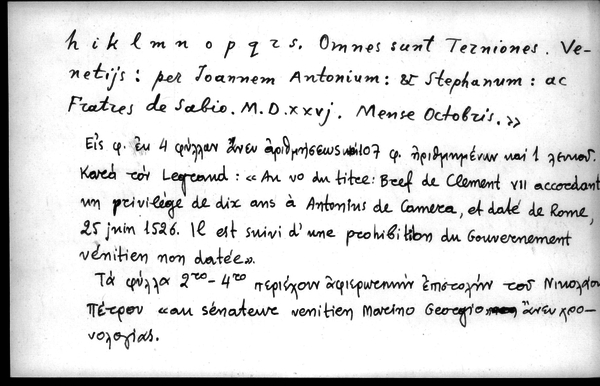 h i k l m n o p q r s. Omnes sunt Terniones. Ve-
netijs: per Joannem Antonium: & Stephanum: ac
Fratres de Sabio. M.D.xxvj. Mense Octobris.»
Εἰς φ. ἐκ 4 φύλλων ἄνευ ἀριθμήσεως 107 φ. ἠριθμημένων καὶ 1 λευκοῦ.
Κατά τὸν Legrand: «Au vo du titre: Bref de Clement VII accordant
un privilège de dix ans à Antonius de Camera, et daté de Rome,
25 juin 1526. Il est suivi d'une prohibition du Gouvernement
vénitien non datée».
Τὰ φύλλα 2ον-4ον περιέχουν ἀφιερωτικὴν ἐπιστολὴν τοῦ Νικολάου
Πέτρου «au sénateur venitien Marino Georgio ἄνευ χρο-
νολογίας.